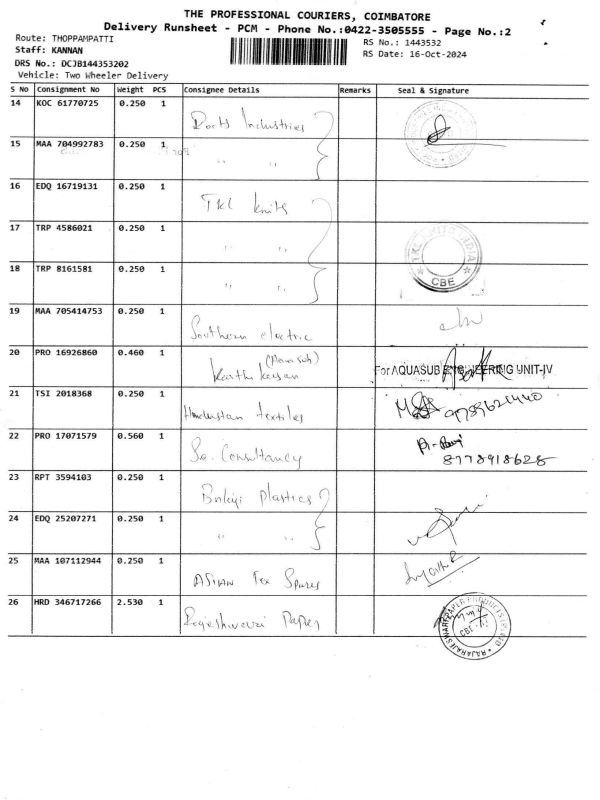 THE PROFESSIONAL COURIERS, COIMBATORE
Delivery Runsheet - PCM - Phone No.:0422-3505555 - Page No.:2
Route: THOPPAMPATTI
RS No.: 1443532
Staff: KANNAN
RS Date: 16-Oct-2024
DRS No.: DCJB144353202
Vehicle: Two Wheeler Delivery
S No Consignment No Weight PCS Consignee Details Remarks Seal & Signature
14 KOC 61770725 0.250 1 Industries
15 MAA 704992783 0.250 1 " "
16 EDQ 16719131 0.250 1 TKL knits
17 TRP 4586021 0.250 1 " " TKL KNITS INDIA
18 TRP 8161581 0.250 1 " " CBE
19 MAA 705414753 0.250 1 Southern electric
20 PRO 16926860 0.460 1 For AQUASUB ENGINEERING UNIT-IV
21 TSI 2018368 0.250 1 Hindustan textiles 9789621440
22 PRO 17071579 0.560 1 Consultancy
8778918628
23 RPT 3594103 0.250 1 Plastics
24 EDQ 25207271 0.250 1 " "
25 MAA 107112944 0.250 1 ASIAN Tex Spares
26 HRD 346717266 2.530 1 Rajeshwari Paper
RAJARAJESWARI PAPER PRODUCTS
CBE